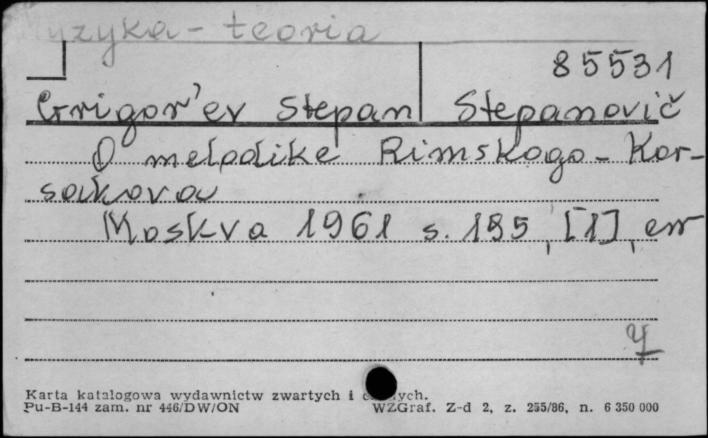 Muzyka - teoria
85531
Grigor'ev Stepan Stepanovič
O melodike Rimskogo-Kor-
sakova
Moskva 1961 s. 195, [1], err
4
Karta katalogowa wydawnictw zwartych i ych.
Pu-B-144 zam. nr 446/DW/ON WZGraf. Z-d 2, z. 255/86, n. 6 350 000